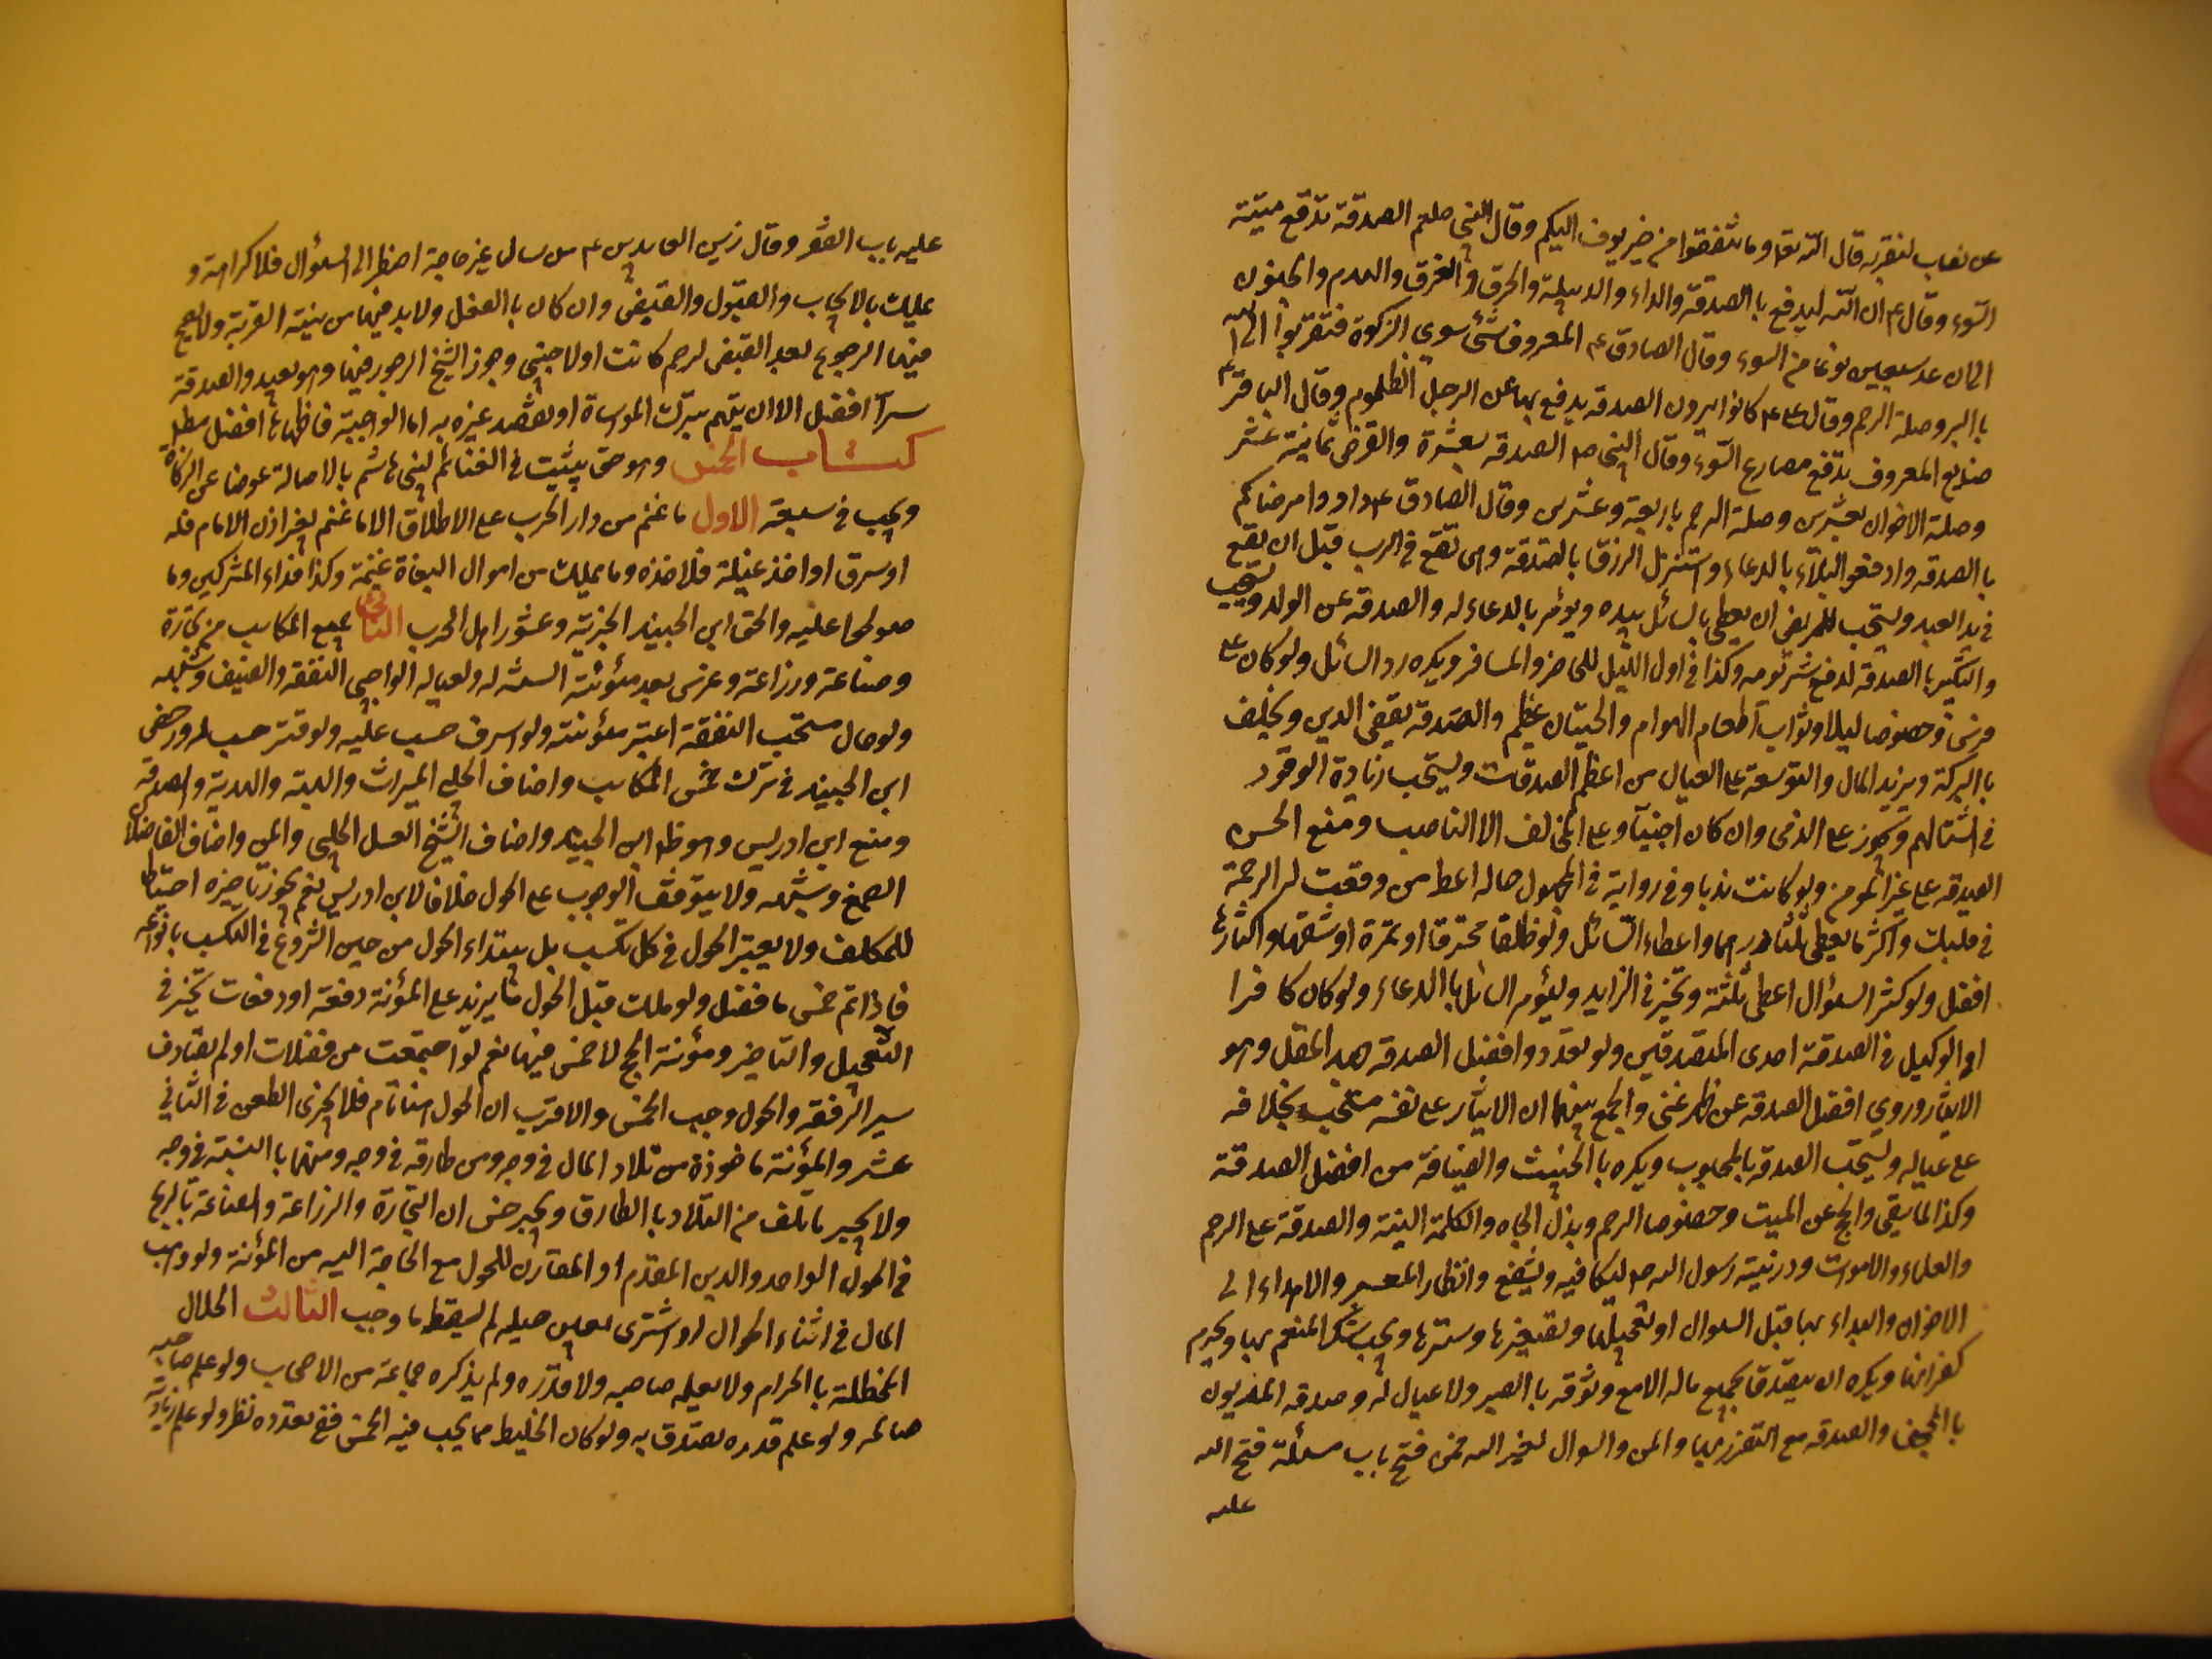 عن نصاب لنقربه قال الله تعا وما تنفقوا من خير يوف اليكم وقال النبى صلعم الصدقة تدفع ميتة
السوء وقال ع ان الله ليدفع با الصدقة والداء والدبيلة والحرق والغرق والهدم والجنون
الى ان عد سبعين نوعا من السوء وقال الصادق ع المعروف شئ سوى الزكوة فتقربوا الى الله
با البر وصلة الرحم وقال ع كانوا يرون الصدقه يدفع بها عن الرجل الظلوم وقال الباقر ع
صنايع المعروف تدفع مصارع السوء وقال النبى ص الصدقه بعشرة والقرض ثمانية عشر
وصلة الاخوان بعشرين وصلة الرحم باربعة وعشرين وقال الصادق ع داووا مرضاكم
با الصدقه وادفعو البلاء بالدعاء واستنزل الرزق بالصدقة وهى تقع فى الرب قبل ان تقع
فى يد العبد ويستحب للمريض ان يعطى بالسائل بيده ويؤمر بالدعاء له والصدقه عن الولد ويستحب
والتبكير با الصدقه لدفع شر يومه وكذا فى اول الليل للحاضر والمسافر ويكره رد السائل ولو كان على
فرس وخصوصا ليلا وثواب اطعام الهوام والحيتان عظيم والصدقه يقضى الدين ويخلف
با البركة ويزيد المال والتوسعة على العيال من اعظم الصدقات ويستحب زيادة الوقود
فى الشتا لهم ويجوز على الذمى وان كان اجنبيا وعلى المخالف الا الناصب ومنع الحسن
الصدقه على غير المومن ولو كانت ندبا وفى رواية فى المجهول حاله اعط من وقعت له الرحمة
فى قلبك واكثر ما يعطى ثلثا درهما واعطاء السائل ولو ظلفا محترقا او تمرة او شقها واكثارها
افضل ولو كثر السؤال اعطى ثلثة وتخير فى الزايد وليؤمر السائل با الدعاء ولو كان كافرا
او الوكيل فى الصدقة احدى المتصدقين ولو تعدد وافضل الصدقه جهد المقل وهو
الايثار وروى افضل الصدقه عن ظهر غنى والجمع بينهما ان الايثار على نفسه مستحب بخلافه
على عياله ويستحب الصدقه بالمحبوب ويكره با الخبيث والضيافة من افضل الصدقة
وكذا الماء يسقى والحج عن الميت وخصوصا الرحم وبذل الجاه والكلمة الينة والصدقة على الرحم
والعلماء والاموات وذرية رسول الله ص ليكافيه ويشفع وانظار المعسر والاهداء الى
الاخوان والبداء بها قبل السوال او تعجيلها وتصغيرها وسترها ويجب شكر المنعم بها ويحرم
كفرانها ويكره ان يتصدق بجميع ماله الا مع وثوقه با الصبر ولا عيال له وصدقه المديون
با المجحف والصدقه مع التضرر بها والمن والسوال لغير الله فمن فتح باب مسئلة فتح الله
عليه
عليه باب الفقر وقال زين العابدين ع من سال غير حاجة اضطر الى السئوال فلا كرامة و
عليك بالايجاب والقبول والقبض وان كان با الفعل ولا بد فيها من نية القربة ولا يصح
فيها الرجوع بعد القبض لرحم كانت او لاجنبى وجوز الشيخ الرجوع فيها وهو بعيد والصدقة
سرا افضل الا ان يتهم بترك المواساة او يقصد غيره به اما الواجبة فاظهارها افضل مطلقا
كتاب الخمس وهو حق يثبت فى الغنائم لبنى هاشم بالاصالة عوضا عن الزكاة
ويجب فى سبعة الاول ما غنم من دار الحرب على الاطلاق الا ما غنم بغير اذن الامام فله
او سرق او اخذ غيلة فلاخذه وما يملك من اموال البغاة غنيمة وكذا فداء المشركين وما
صولحوا عليه والحق ابن الجنيد الجزية وعشور اهل الحرب الثانى جميع المكاسب من تجارة
وصناعة وزراعة وغرس بعد مئونة السنه له ولعياله الواجبى النفقة والضيف وشبهه
ولو عال مستحب النفقة اعتبر مئونته ولو اسرف حسب عليه ولو قتر حسب له ورخص
ابن الجنيد فى ترك خمس المكاسب واضاف الحلبى الميراث والهبة والهدية والصدقة
ومنع ابن ادريس وهو ظ ابن الجنيد واضاف الشيخ العسل الجبلى والمن واضاف الفاضلان
الصمغ وشبهه ولا يتوقف الوجوب على الحول خلافا لابن ادريس نعم يجوز تاخيره احتياطا
للمكلف ولا يعتبر الحول فى كل تكسب بل يبتداء الحول من حين الشروع فى التكسب بانواعه
فاذا تم خمس ما فضل ولو ملك قبل الحول ما يزيد على المؤنة دفعة او دفعات تخير فى
التعجيل والتاخير ومؤنة الحج لا خمس فيها نعم لو اجتمعت من فضلات او لم يصادف
سير الرفقة والحول وجب الخمس والاقرب ان الحول هنا تام فلا يجزى الطعن فى الثانى
عشر والمؤنة ماخوذة من تلاد المال فى وجه ومن طارفه فى وجه ومنهما با النسبة فى وجه
ولا يجبر ما تلف من التلاد با الطارف ويجبر خسران التجارة والزراعة والصناعة بالربح
فى الحول الواحد والدين المقدم او المقارن للحول مع الحاجة اليه من المؤنة ولو وهب
المال فى اثناء الحوال او اشترى بعين حيله لم يسقط ما وجب الثالث الحلال
المختلط با الحرام ولا يعلم صاحبه ولا قدره ولم يذكره جماعة من الاصحاب ولو علم صاحبه
صالحه ولو علم قدره تصدق به ولو كان الخليط مما يجب فيه الخمس ففى تعدده نظر ولو علم زيادته